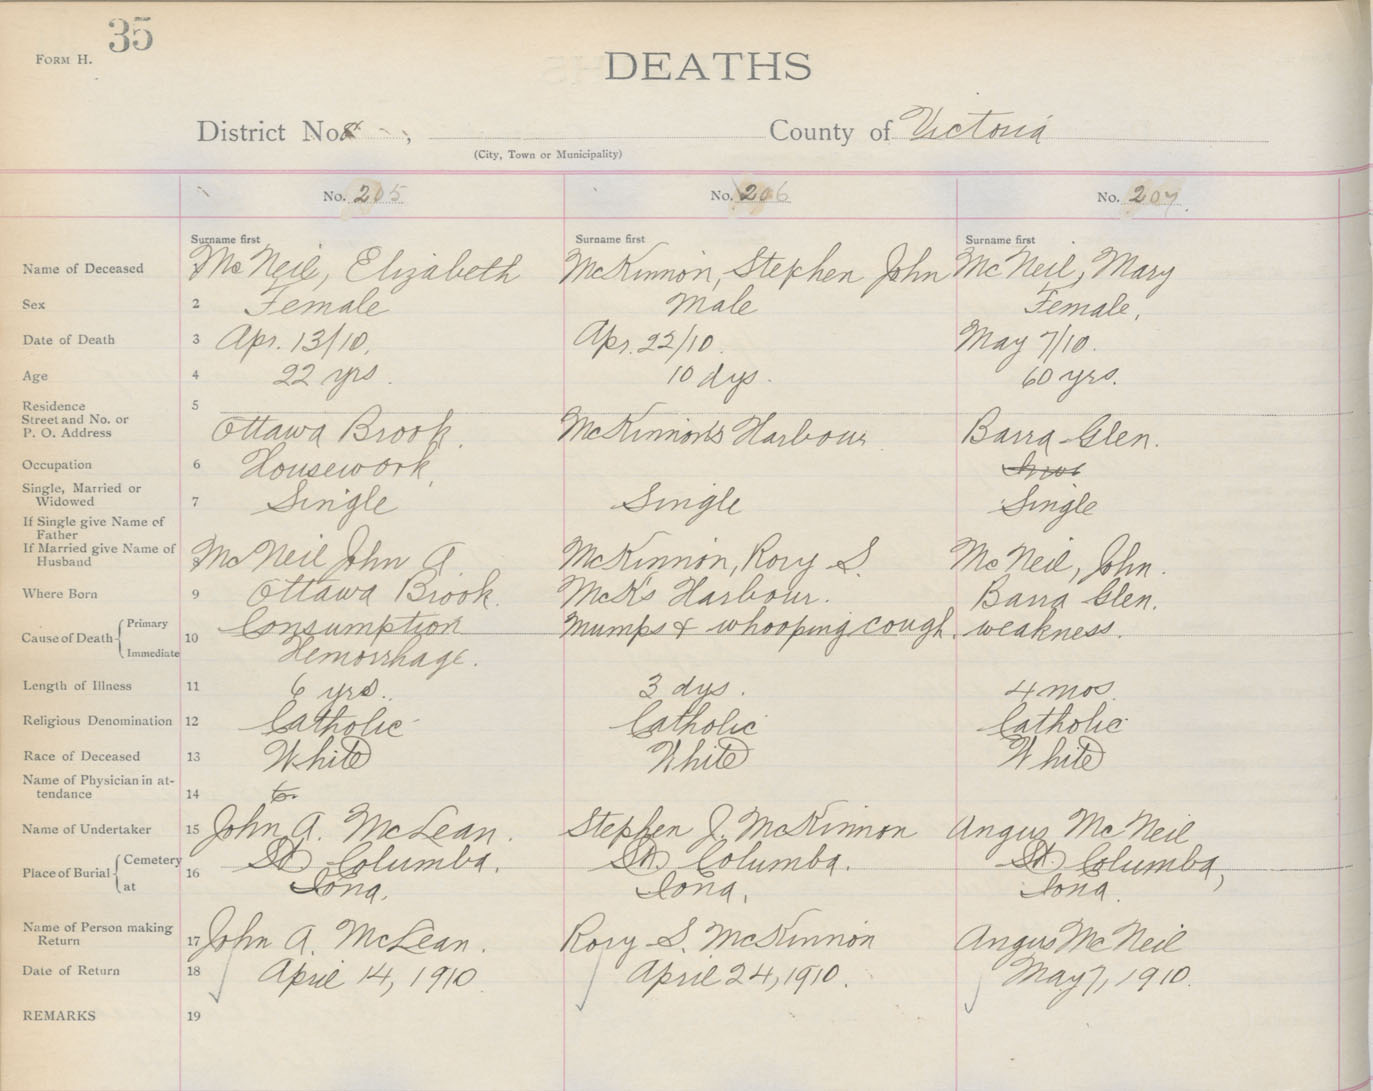 35
FORM H.
DEATHS
District No. 8, County of Victoria
(City, Town or Municipality)
No. 205 No. 206 No. 207
Surname first Surname first Surname first
Name of Deceased McNeil, Elizabeth McKinnon, Stephen John McNeil, Mary
Sex 2 Female Male Female.
Date of Death 3 Apr. 13/10. Apr. 22/10. May 7/10.
Age 4 22 yrs. 10 dys. 60 yrs.
Residence 5
Street and No. or
P. O. Address Ottawa Brook. McKinnon's Harbour Barra Glen.
Occupation 6 Housework,
Single, Married or
Widowed 7 Single Single Single
If Single give Name of
Father
If Married give Name of
Husband 8 McNeil John A. McKinnon, Rory S. McNeil, John.
Where Born 9 Ottawa Brook. McK's Harbour. Barra Glen.
Cause of Death Primary 10 Consumption Mumps & whooping cough. weakness.
Immediate Hemorrhage.
Length of Illness 11 6 yrs. 3 dys. 4 mos.
Religious Denomination 12 Catholic Catholic Catholic
Race of Deceased 13 White White White
Name of Physician in at-
tendance 14
Name of Undertaker 15 John A. McLean. Stephen J. McKinnon Angus McNeil
Place of Burial Cemetery 16 St. Columba. St. Columba. St. Columba,
at Iona. Iona. Iona.
Name of Person making
Return 17 John A. McLean. Rory S. McKinnon Angus McNeil
Date of Return 18 April 14, 1910. April 24, 1910. May 7, 1910.
REMARKS 19